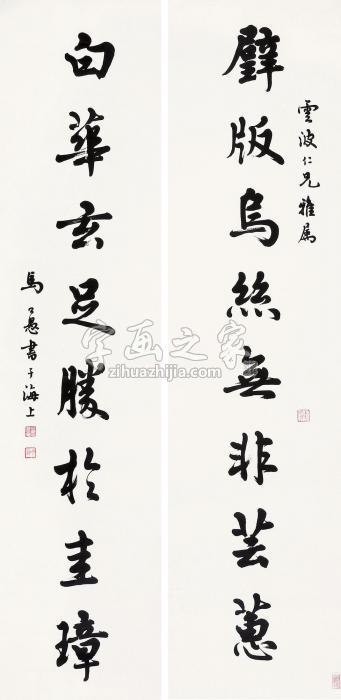 雲波仁兄雅属
璧版烏絲無非芸蕙
句華玄足勝於圭璋
馬公愚書于海上
字画之家
zihuazhijia.com